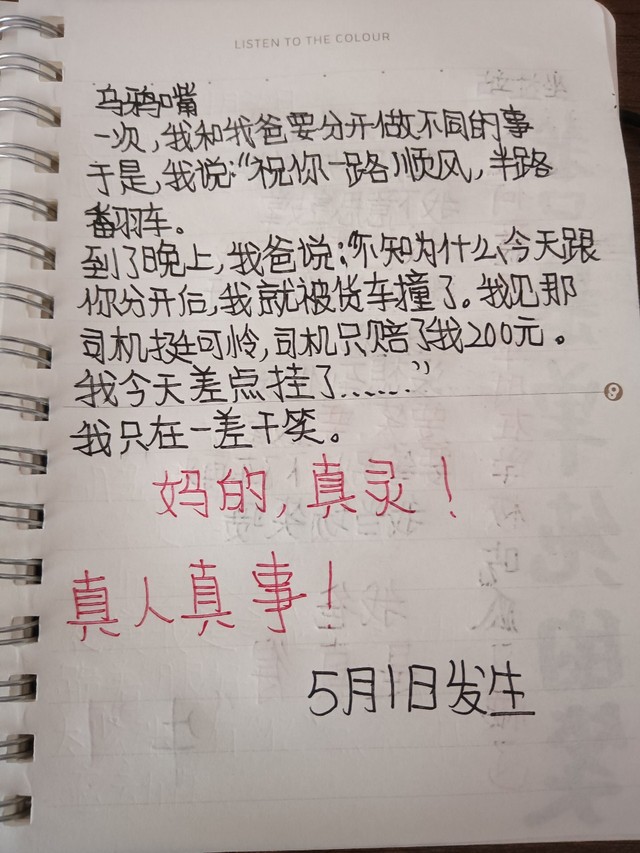 LISTEN TO THE COLOUR
乌鸦嘴
一次,我和我爸要分开做不同的事
于是,我说:“祝你一路顺风,半路
翻车。
到了晚上,我爸说:“不知为什么,今天跟
你分开后,我就被货车撞了。我见那
司机挺可怜,司机只赔了我200元。
我今天差点挂了......”
我只在一差干笑。
妈的,真灵!
真人真事!
5月1日发生